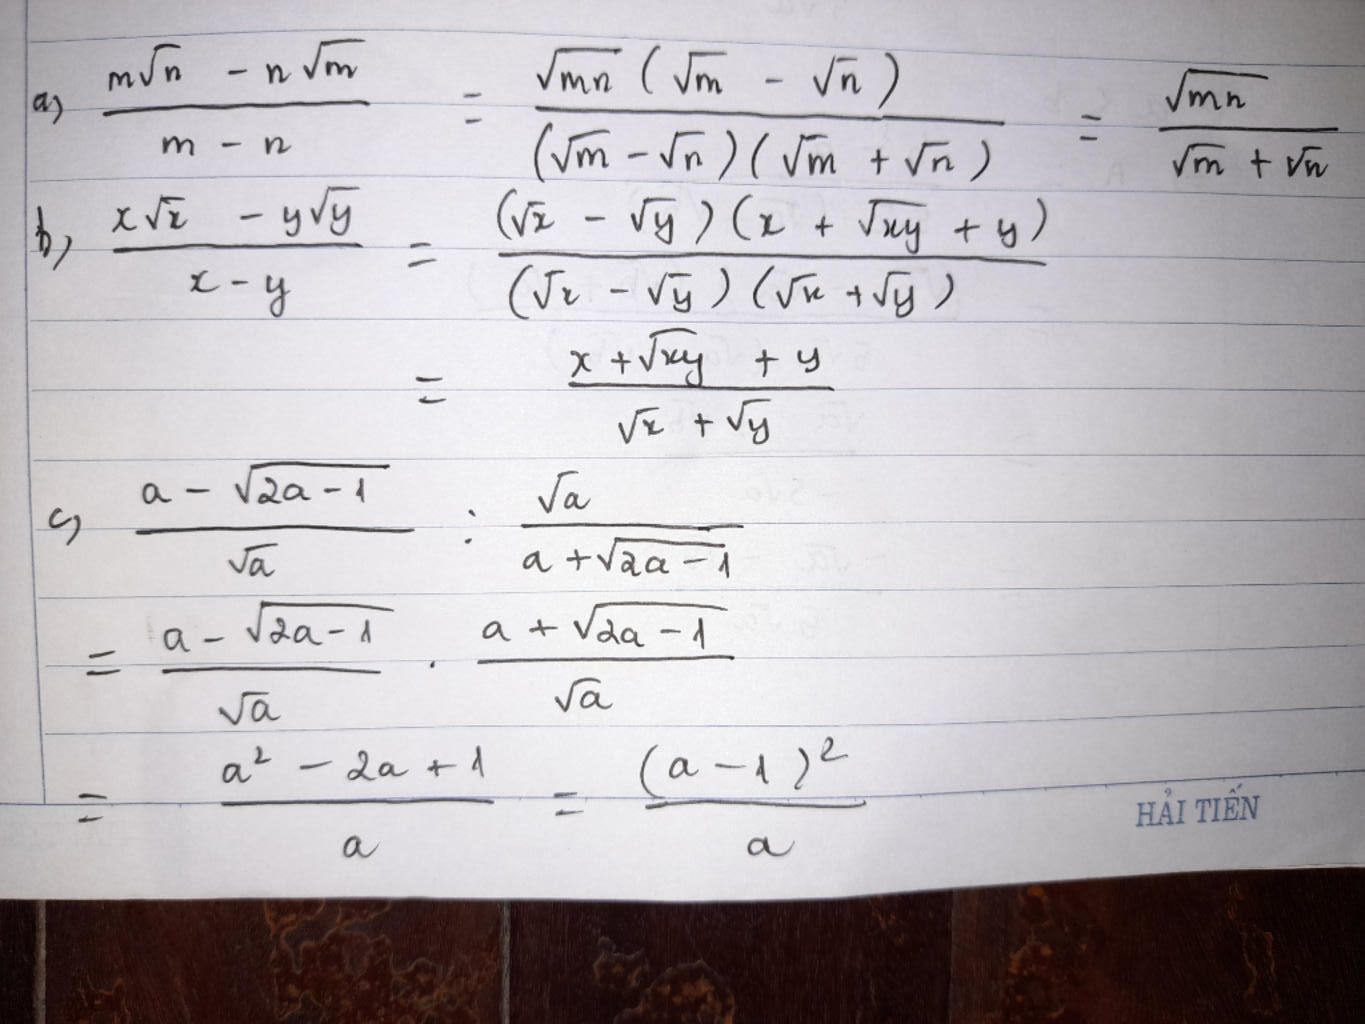 a) \frac{m\sqrt{n} - n\sqrt{m}}{m - n} = \frac{\sqrt{mn}(\sqrt{m} - \sqrt{n})}{(\sqrt{m} - \sqrt{n})(\sqrt{m} + \sqrt{n})} = \frac{\sqrt{mn}}{\sqrt{m} + \sqrt{n}}
b) \frac{x\sqrt{x} - y\sqrt{y}}{x - y} = \frac{(\sqrt{x} - \sqrt{y})(x + \sqrt{xy} + y)}{(\sqrt{x} - \sqrt{y})(\sqrt{x} + \sqrt{y})}
= \frac{x + \sqrt{xy} + y}{\sqrt{x} + \sqrt{y}}
c) \frac{a - \sqrt{2a - 1}}{\sqrt{a}} : \frac{\sqrt{a}}{a + \sqrt{2a - 1}}
= \frac{a - \sqrt{2a - 1}}{\sqrt{a}} . \frac{a + \sqrt{2a - 1}}{\sqrt{a}}
= \frac{a^2 - 2a + 1}{a} = \frac{(a - 1)^2}{a}
HẢI TIẾN